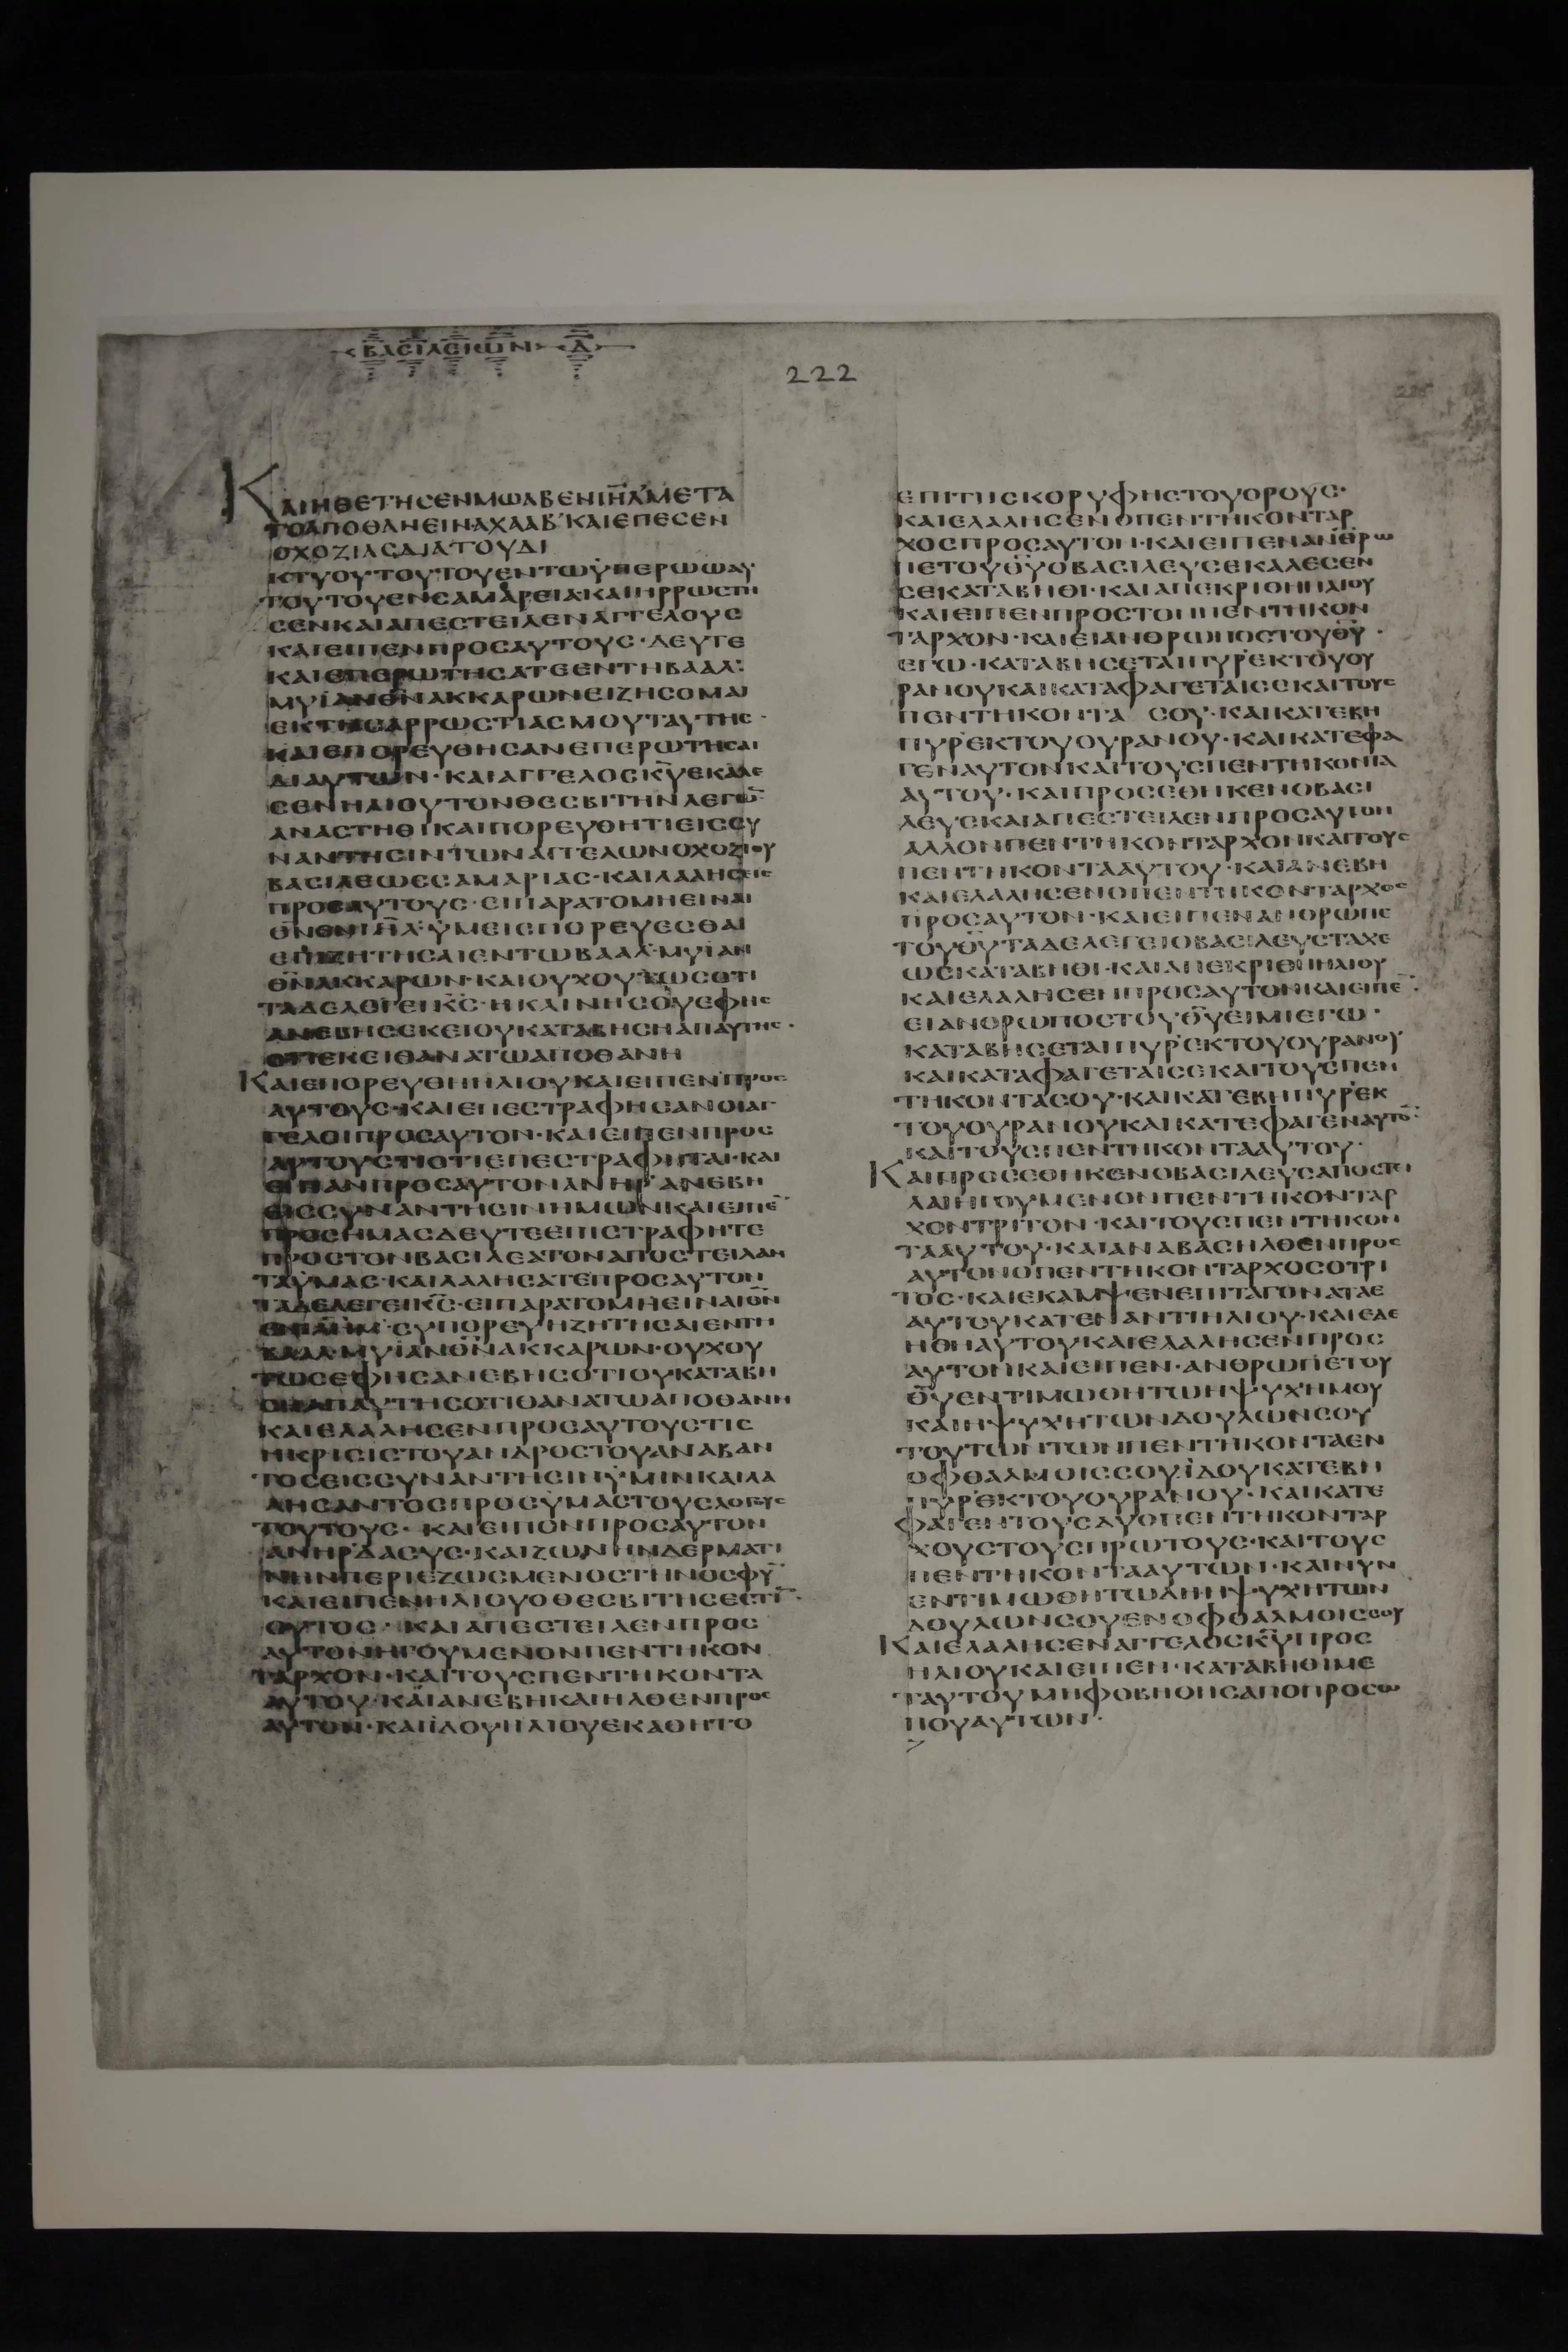 ΒΑΣΙΛΕΙΩΝ Δ
222
ΚΑΙΗΘΕΤΗϹΕΝΜΩΑΒΕΝΙΗΛΜΕΤΑ
ΤΟΑΠΟΘΑΝΕΙΝΑΧΑΑΒ·ΚΑΙΕΠΕϹΕΝ
ΟΧΟΖΙΑϹΔΙΑΤΟΥΔΙ
ΚΤΥΟΥΤΟΥΤΟΥΕΝΤΩΫΠΕΡΩΩΑΥ
ΤΟΥΤΟΥΕΝϹΑΜΑΡΕΙΑΚΑΙΗΡΡΩϹΤΗ
ϹΕΝΚΑΙΑΠΕϹΤΕΙΛΕΝΑΓΓΕΛΟΥϹ
ΚΑΙΕΙΠΕΝΠΡΟϹΑΥΤΟΥϹ·ΔΕΥΤΕ
ΚΑΙΕΠΕΡΩΤΗϹΑΤΕΕΝΤΗΒΑΑΛ·
ΜΥΙΑΝΘΝΑΚΚΑΡΩΝΕΙΖΗϹΟΜΑΙ
ΕΚΤΗϹΑΡΡΩϹΤΙΑϹΜΟΥΤΑΥΤΗϹ·
ΚΑΙΕΠΟΡΕΥΘΗϹΑΝΕΠΕΡΩΤΗϹΑΙ
ΔΙΑΥΤΩΝ·ΚΑΙΑΓΓΕΛΟϹΚΥΕΚΑΛΕ
ϹΕΝΗΛΙΟΥΤΟΝΘΕϹΒΙΤΗΝΛΕΓΩ̅
ΑΝΑϹΤΗΘΙΚΑΙΠΟΡΕΥΘΗΤΙΕΙϹϹΥ
ΝΑΝΤΗϹΙΝΤΩΝΑΓΓΕΛΩΝΟΧΟΖΙΟΥ
ΒΑϹΙΛΕΩϹϹΑΜΑΡΙΑϹ·ΚΑΙΛΑΛΗϹΕΙϹ
ΠΡΟϹΑΥΤΟΥϹ·ΕΙΠΑΡΑΤΟΜΗΕΙΝΑΙ
ΘΝΕΝΙΗΛ·ΫΜΕΙϹΠΟΡΕΥΕϹΘΑΙ
ΕΠΙΖΗΤΗϹΑΙΕΝΤΩΒΑΑΛ·ΜΥΙΑΝ
ΘΝΑΚΚΑΡΩΝ·ΚΑΙΟΥΧΟΥΤΩϹΟΤΙ
ΤΑΔΕΛΕΓΕΙΚϹ·ΗΚΛΙΝΗϹΟΥΕΦΗϹ
ΑΝΕΒΗϹΕΚΕΙΟΥΚΑΤΑΒΗϹΗΑΠΑΥΤΗϹ·
ΟΤΙΕΚΕΙΘΑΝΑΤΩΑΠΟΘΑΝΗ
ΚΑΙΕΠΟΡΕΥΘΗΗΛΙΟΥΚΑΙΕΙΠΕΝΠΡΟϹ
ΑΥΤΟΥϹ·ΚΑΙΕΠΕϹΤΡΑΦΗϹΑΝΟΙΑΓ
ΓΕΛΟΙΠΡΟϹΑΥΤΟΝ·ΚΑΙΕΙΠΕΝΠΡΟϹ
ΑΥΤΟΥϹΤΙΟΤΙΕΠΕϹΤΡΑΦΗΤΑΙ·ΚΑΙ
ΕΙΠΑΝΠΡΟϹΑΥΤΟΝΑΝΗΡΑΝΕΒΗ
ΕΙϹϹΥΝΑΝΤΗϹΙΝΗΜΩΝΚΑΙΕΙΠΕ̅
ΠΡΟϹΗΜΑϹΔΕΥΤΕΕΠΙϹΤΡΑΦΗΤΕ
ΠΡΟϹΤΟΝΒΑϹΙΛΕΑΤΟΝΑΠΟϹΤΕΙΛΑΝ
ΤΑΫΜΑϹ·ΚΑΙΛΑΛΗϹΑΤΕΠΡΟϹΑΥΤΟΝ
ΤΑΔΕΛΕΓΕΙΚϹ·ΕΙΠΑΡΑΤΟΜΗΕΙΝΑΙΘΝ
ΕΝΙΗΛΜ·ϹΥΠΟΡΕΥΗΖΗΤΗϹΑΙΕΝΤΗ
ΒΑΑΛ·ΜΥΙΑΝΘΝΑΚΚΑΡΩΝ·ΟΥΧΟΥ
ΤΩϹΕΦΗϹΑΝΕΒΗϹΟΤΙΟΥΚΑΤΑΒΗ
ϹΗΑΠΑΥΤΗϹΟΤΙΘΑΝΑΤΩΑΠΟΘΑΝΗ
ΚΑΙΕΛΑΛΗϹΕΝΠΡΟϹΑΥΤΟΥϹΤΙϹ
ΗΚΡΙϹΙϹΤΟΥΑΝΔΡΟϹΤΟΥΑΝΑΒΑΝ
ΤΟϹΕΙϹϹΥΝΑΝΤΗϹΙΝΫΜΙΝΚΑΙΛΑ
ΛΗϹΑΝΤΟϹΠΡΟϹΫΜΑϹΤΟΥϹΛΟΓΟΥϹ
ΤΟΥΤΟΥϹ·ΚΑΙΕΙΠΟΝΠΡΟϹΑΥΤΟΝ
ΑΝΗΡΔΑϹΥϹ·ΚΑΙΖΩΝΗΝΔΕΡΜΑΤΙ
ΝΗΝΠΕΡΙΕΖΩϹΜΕΝΟϹΤΗΝΟϹΦΥ̅
ΚΑΙΕΙΠΕΝΗΛΙΟΥΟΘΕϹΒΙΤΗϹΕϹΤΙ̅·
ΟΥΤΟϹ·ΚΑΙΑΠΕϹΤΕΙΛΕΝΠΡΟϹ
ΑΥΤΟΝΗΓΟΥΜΕΝΟΝΠΕΝΤΗΚΟΝ
ΤΑΡΧΟΝ·ΚΑΙΤΟΥϹΠΕΝΤΗΚΟΝΤΑ
ΑΥΤΟΥ·ΚΑΙΑΝΕΒΗΚΑΙΗΛΘΕΝΠΡΟϹ
ΑΥΤΟΝ·ΚΑΙΙΔΟΥΗΛΙΟΥΕΚΑΘΗΤΟ
ΕΠΙΤΗϹΚΟΡΥΦΗϹΤΟΥΟΡΟΥϹ·
ΚΑΙΕΛΑΛΗϹΕΝΟΠΕΝΤΗΚΟΝΤΑΡ
ΧΟϹΠΡΟϹΑΥΤΟΝ·ΚΑΙΕΙΠΕΝΑΝΘΡΩ
ΠΕΤΟΥΘΥΟΒΑϹΙΛΕΥϹΕΚΑΛΕϹΕΝ
ϹΕΚΑΤΑΒΗΘΙ·ΚΑΙΑΠΕΚΡΙΘΗΗΛΙΟΥ
ΚΑΙΕΙΠΕΝΠΡΟϹΤΟΝΠΕΝΤΗΚΟΝ
ΤΑΡΧΟΝ·ΚΑΙΕΙΑΝΘΡΩΠΟϹΤΟΥΘΥ·
ΕΓΩ·ΚΑΤΑΒΗϹΕΤΑΙΠΥΡΕΚΤΟΥΟΥ
ΡΑΝΟΥΚΑΙΚΑΤΑΦΑΓΕΤΑΙϹΕΚΑΙΤΟΥϹ
ΠΕΝΤΗΚΟΝΤΑ ϹΟΥ·ΚΑΙΚΑΤΕΒΗ
ΠΥΡΕΚΤΟΥΟΥΡΑΝΟΥ·ΚΑΙΚΑΤΕΦΑ
ΓΕΝΑΥΤΟΝΚΑΙΤΟΥϹΠΕΝΤΗΚΟΝΤΑ
ΑΥΤΟΥ·ΚΑΙΠΡΟϹΕΘΗΚΕΝΟΒΑϹΙ
ΛΕΥϹΚΑΙΑΠΕϹΤΕΙΛΕΝΠΡΟϹΑΥΤΟΝ
ΑΛΛΟΝΠΕΝΤΗΚΟΝΤΑΡΧΟΝΚΑΙΤΟΥϹ
ΠΕΝΤΗΚΟΝΤΑΑΥΤΟΥ·ΚΑΙΑΝΕΒΗ
ΚΑΙΕΛΑΛΗϹΕΝΟΠΕΝΤΗΚΟΝΤΑΡΧΟϹ
ΠΡΟϹΑΥΤΟΝ·ΚΑΙΕΙΠΕΝΑΝΘΡΩΠΕ
ΤΟΥΘΥΤΑΔΕΛΕΓΕΙΟΒΑϹΙΛΕΥϹΤΑΧΕ
ΩϹΚΑΤΑΒΗΘΙ·ΚΑΙΑΠΕΚΡΙΘΗΗΛΙΟΥ
ΚΑΙΕΛΑΛΗϹΕΝΠΡΟϹΑΥΤΟΝΚΑΙΕΙΠΕ̅·
ΕΙΑΝΘΡΩΠΟϹΤΟΥΘΥΕΙΜΙΕΓΩ·
ΚΑΤΑΒΗϹΕΤΑΙΠΥΡΕΚΤΟΥΟΥΡΑΝΟΥ
ΚΑΙΚΑΤΑΦΑΓΕΤΑΙϹΕΚΑΙΤΟΥϹΠΕΝ
ΤΗΚΟΝΤΑϹΟΥ·ΚΑΙΚΑΤΕΒΗΠΥΡΕΚ
ΤΟΥΟΥΡΑΝΟΥΚΑΙΚΑΤΕΦΑΓΕΝΑΥΤΟ̅·
ΚΑΙΤΟΥϹΠΕΝΤΗΚΟΝΤΑΑΥΤΟΥ·
ΚΑΙΠΡΟϹΕΘΗΚΕΝΟΒΑϹΙΛΕΥϹΑΠΟϹΤΙ
ΛΑΙΗΓΟΥΜΕΝΟΝΠΕΝΤΗΚΟΝΤΑΡ
ΧΟΝΤΡΙΤΟΝ·ΚΑΙΤΟΥϹΠΕΝΤΗΚΟΝ
ΤΑΑΥΤΟΥ·ΚΑΙΑΝΑΒΑϹΗΛΘΕΝΠΡΟϹ
ΑΥΤΟΝΟΠΕΝΤΗΚΟΝΤΑΡΧΟϹΟΤΡΙ
ΤΟϹ·ΚΑΙΕΚΑΜΨΕΝΕΠΙΤΑΓΟΝΑΤΑΕ
ΑΥΤΟΥΚΑΤΕΝΑΝΤΙΗΛΙΟΥ·ΚΑΙΕΔΕ
ΗΘΗΑΥΤΟΥΚΑΙΕΛΑΛΗϹΕΝΠΡΟϹ
ΑΥΤΟΝΚΑΙΕΙΠΕΝ·ΑΝΘΡΩΠΕΤΟΥ
ΘΥΕΝΤΙΜΩΘΗΤΩΗΨΥΧΗΜΟΥ
ΚΑΙΗΨΥΧΗΤΩΝΔΟΥΛΩΝϹΟΥ
ΤΟΥΤΩΝΤΩΝΠΕΝΤΗΚΟΝΤΑΕΝ
ΟΦΘΑΛΜΟΙϹϹΟΥΙΔΟΥΚΑΤΕΒΗ
ΠΥΡΕΚΤΟΥΟΥΡΑΝΟΥ·ΚΑΙΚΑΤΕ
ΦΑΓΕΝΤΟΥϹΔΥΟΠΕΝΤΗΚΟΝΤΑΡ
ΧΟΥϹΤΟΥϹΠΡΩΤΟΥϹ·ΚΑΙΤΟΥϹ
ΠΕΝΤΗΚΟΝΤΑΑΥΤΩΝ·ΚΑΙΝΥΝ
ΕΝΤΙΜΩΘΗΤΩΔΗΗΨΥΧΗΤΩΝ
ΔΟΥΛΩΝϹΟΥΕΝΟΦΘΑΛΜΟΙϹϹΟΥ
ΚΑΙΕΛΑΛΗϹΕΝΑΓΓΕΛΟϹΚΥΠΡΟϹ
ΗΛΙΟΥΚΑΙΕΙΠΕΝ·ΚΑΤΑΒΗΘΙΜΕ
ΤΑΥΤΟΥΜΗΦΟΒΗΘΗϹΑΠΟΠΡΟϹΩ
ΠΟΥΑΥΤΩΝ·